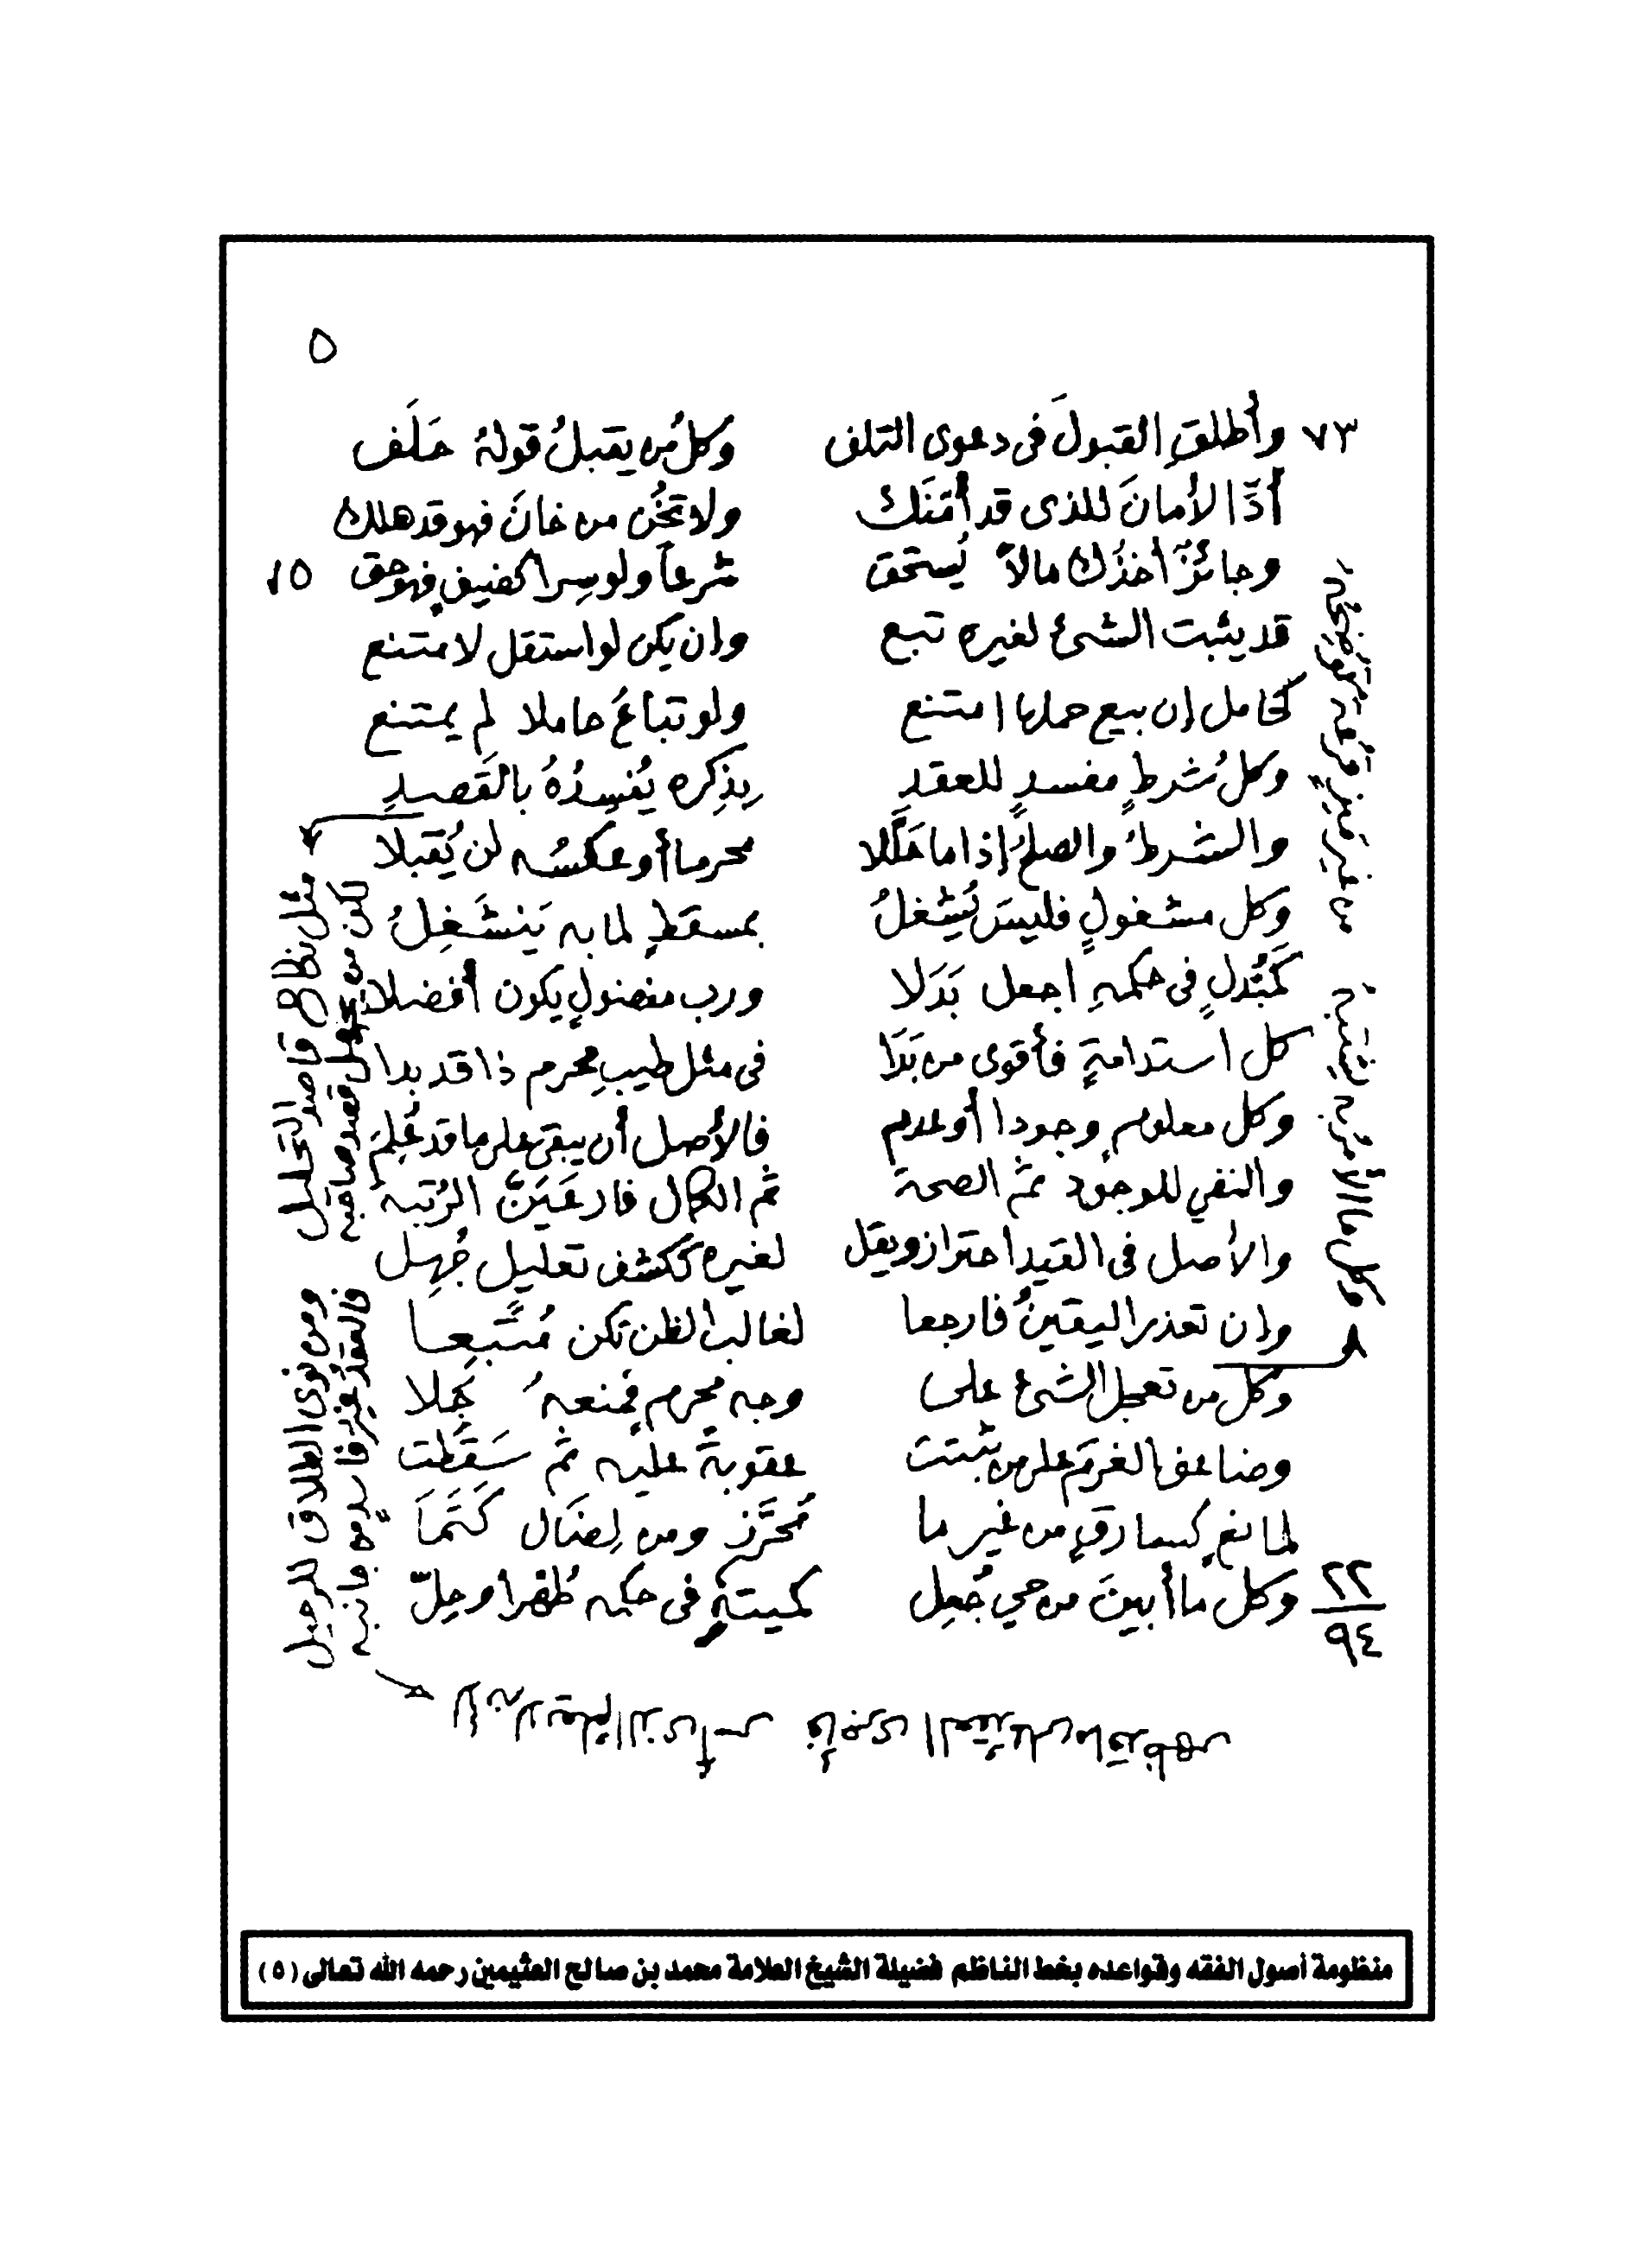 ٥
٧٣ وأطلقِ القبولَ في دعوى التلف وكلُ من يقبلُ قولهُ حَلَف
أدّ الأمانَ للذي قد أمّنَك ولا تخُن من خانَ فهو قد هلك
وجائزٌ أخذُك مالاً يُستحق شرعاً ولو سِرا كضيفٍ فهو حق ١٥
قد يثبت الشئ لغيره تبع وإن يكن لو استقل لامتنع
كحامل إن بيع حملها امتنع ولو تباعُ حاملا لم يمتنع
وكلُ شرطٍ مفسدٍ للعقدِ بِذِكرِه يُفسِدُهُ بالقَصدِ
مثل نكاح قاصد التحليل ومن نوى الطلاق للرحيل
لكن من يجهل قصد صاحبه فالعقد غير فاسد من جانبه
لأنه لا يعلم الذي أسر فأجري العقد على ما قد ظهر
والشرطُ والصلحُ إذا ما حَلَّلا محرما أو عكسُه لن يُقبلا
وكل مشغولٍ فليسَ يُشغلُ بمسقطٍ لما به يَنشَغِلُ
كمُبْدلٍ في حكمهِ اجعل بَدَلا ورب مفضولٍ يكون أفضلا
كل استدامةٍ فأقوى من بَدَا في مثل طيبِ محرم ذا قد بدا
وكل معلومٍ وجودا أو عدم فالأصل أن يبقى على ما قد عُلِم
والنفي للوجود ثم الصحة ثم الكمال فارعَيَنَّ الرُتبة
والأصل في القيد احتراز ويقل لغيره ككشف تعليل جُهِل
وإن تعذر اليقينُ فارجعا لغالب الظن تكن مُتَّبِعا
وكل ما الأمر به يشتبه من غير ميز قرعة توضحه
وكل من تعجل الشئ على وجه محرم فمنعهُ جَلا
وضاعف الغرمَ على من ثبتت عقوبةٌ عليه ثم سَقَطَت
لمانع كسارقٍ من غير ما مُحرَّزٍ ومن لِضَال كَتَما
٢٢ وكل ما أبينَ من حي جُعِل كميتةٍ في حكمه طُهْرا وحِلّ
٩٤
منظومة أصول الفقه وقواعده بخط الناظم فضيلة الشيخ العلامة محمد بن صالح العثيمين رحمه الله تعالى (٥)